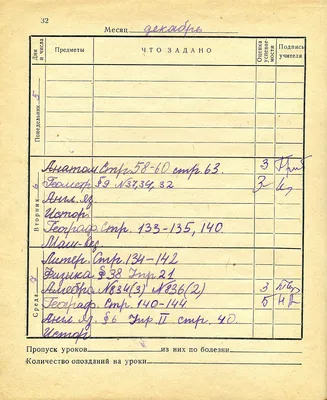 32
Месяц декабрь
Дни и числа
Предметы
ЧТО ЗАДАНО
Оценка успевае-мости
Подпись учителя
Понедельник 5
Вторник 6
Анатом. Стр. 58-60 стр. 63. 3
Геометр. §9 №31,34, 32 3
Англ. яз.
Истор.
Географ. Стр. 133-135, 140.
Маш-вед.
Среда 7
Литер. Стр. 134-142
Физика § 38 Упр 21
Алгебра №834(3) №836(2) 3
Географ. Стр. 140-144 5
Англ. яз. §6 Упр. II стр. 40.
Истор.
Пропуск уроков из них по болезни
Количество опозданий на уроки